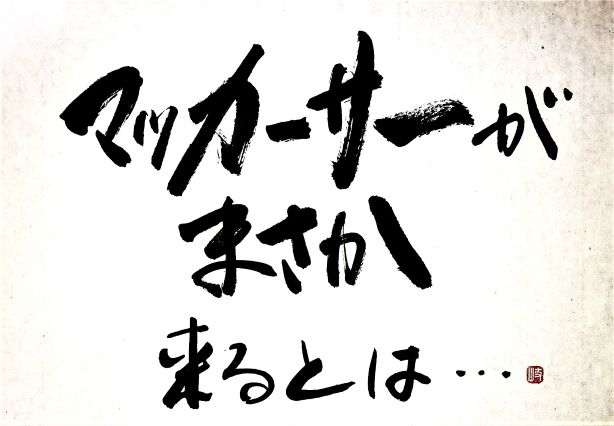 マッカーサーが
まさか
来るとは…